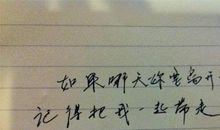 如果哪天你要离开
记得把我一起带走